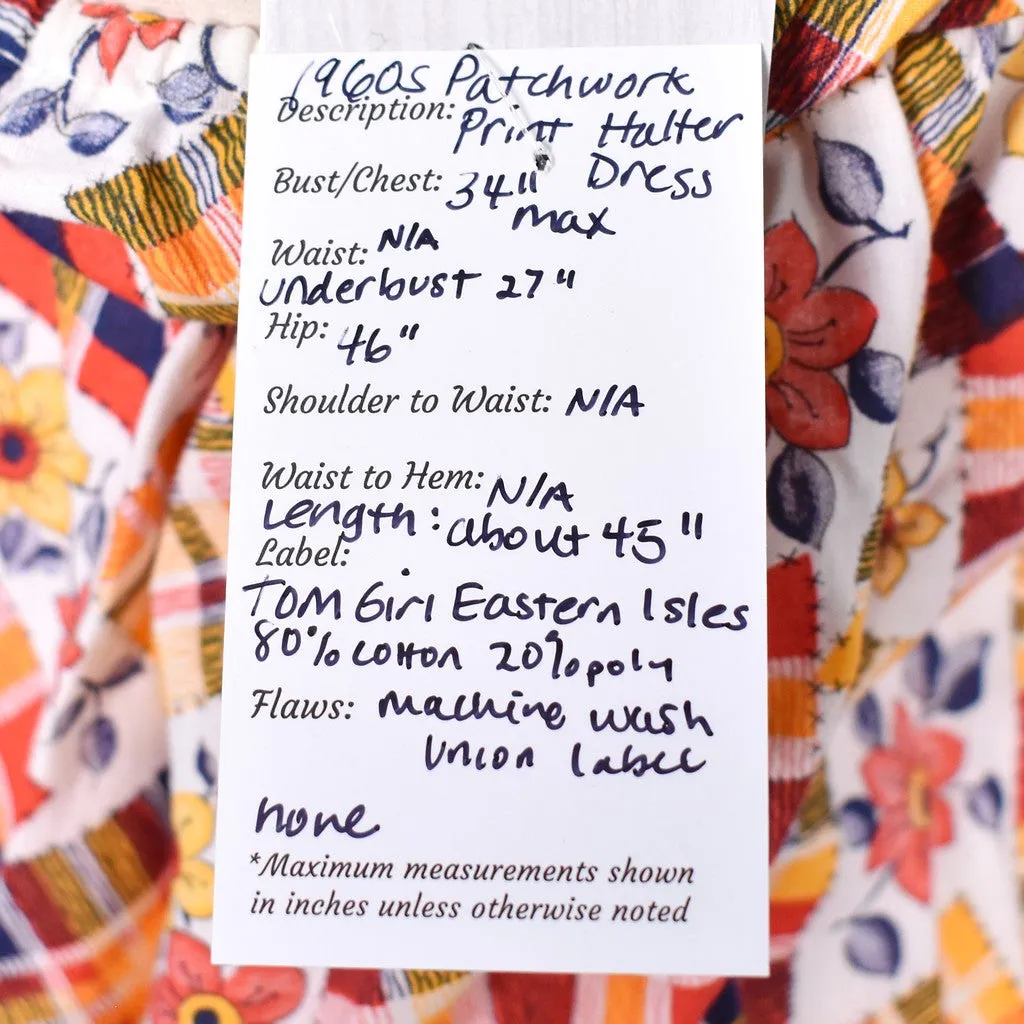 1960s Patchwork
Description: Print Halter
Dress
Bust/Chest: 34"
max
Waist: N/A
Underbust 27"
Hip: 46"
Shoulder to Waist: N/A
Waist to Hem: N/A
Length: about 45"
Label:
Tom Girl Eastern Isles
80% cotton 20% poly
Flaws: machine wash
Union label
none
*Maximum measurements shown
in inches unless otherwise noted